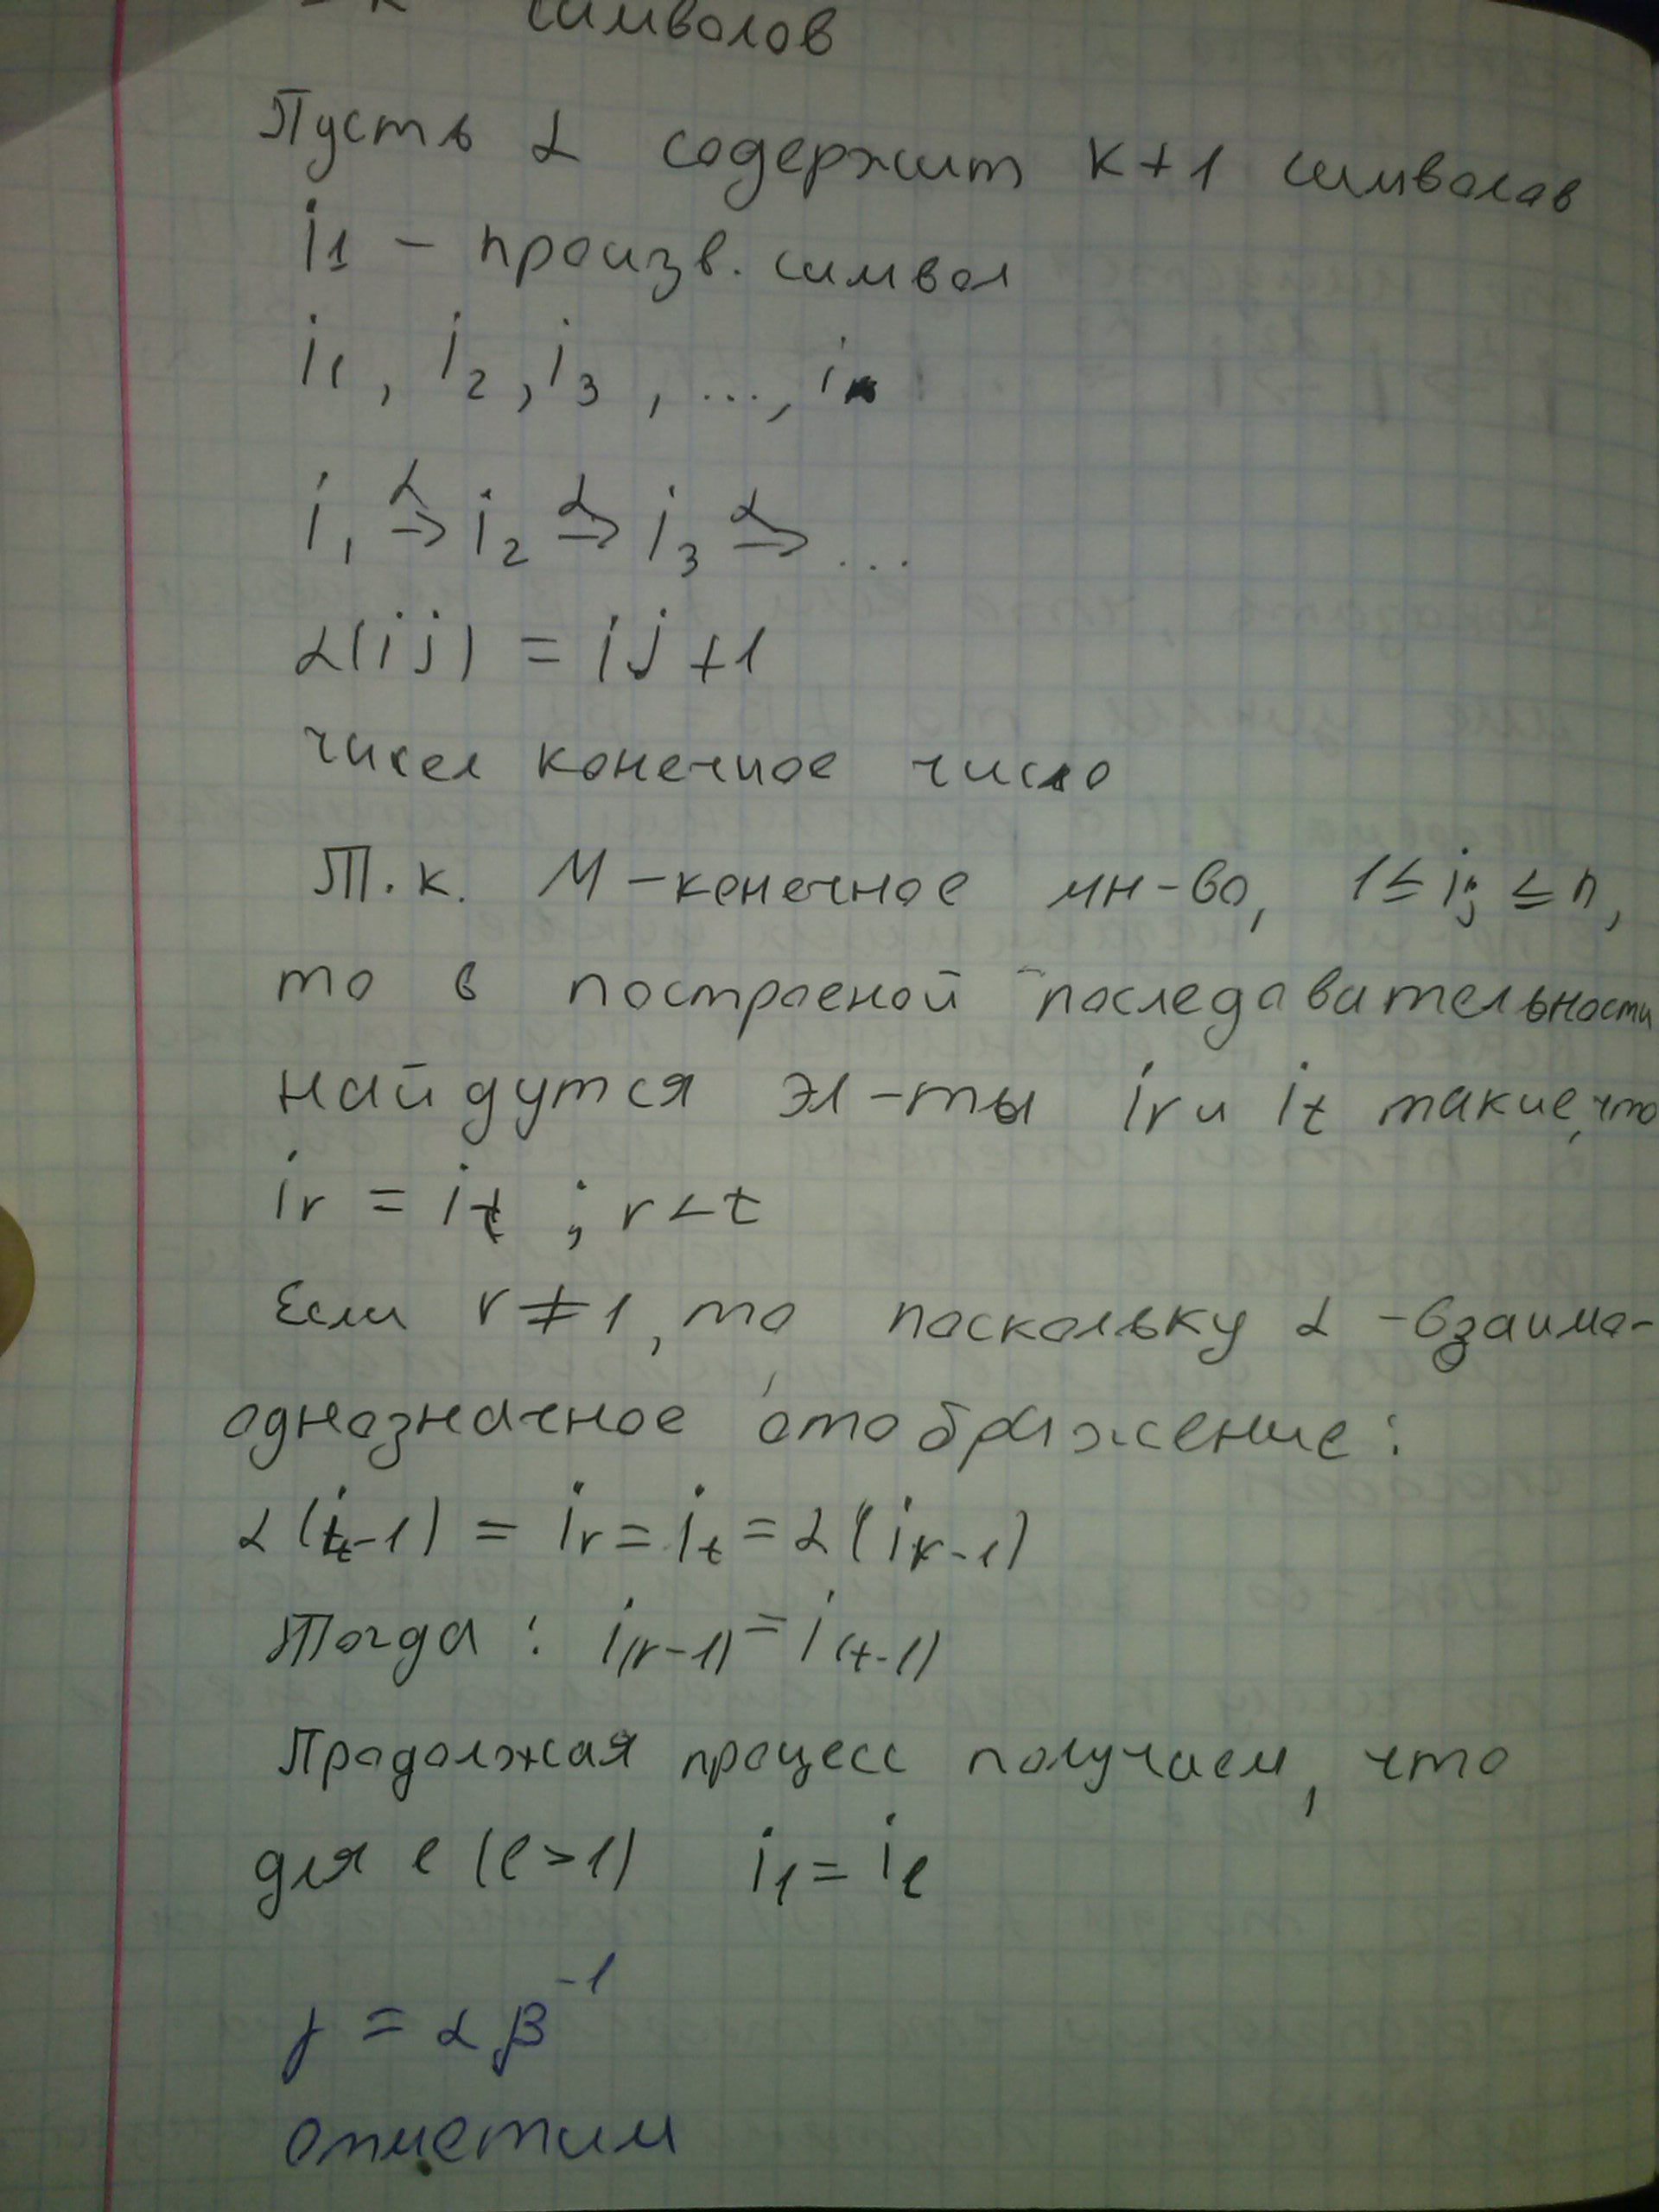 - к символов
Пусть α содержит к+1 символов
i₁ - произв. символ
i₁, i₂, i₃, ..., i
i₁ →α i₂ →α i₃ →α ...
α(ij) = ij+1
чисел конечное число
Т.к. М-конечное мн-во, 1≤ij≤n,
то в построеной последовательности
найдутся эл-ты ir и it такие, что
ir = it ; r<t
Если r≠1, то поскольку α -взаимо-
однозначное отображение:
α(it-1) = ir = it = α(ir-1)
Тогда : i(r-1) = i(t-1)
Продолжая процесс получаем, что
для l (l>1) i₁ = il
γ = αβ⁻¹
отметим